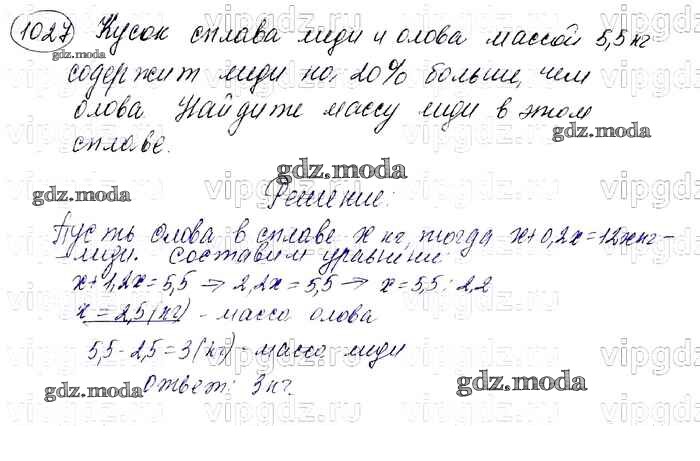 1027 Кусок сплава меди и олова массой 5,5 кг
gdz.moda
содержит меди на 20% больше, чем
олова. Найдите массу меди в этом
gdz.moda
сплаве.
gdz.moda
gdz.moda
Решение:
gdz.moda
Пусть олова в сплаве x кг, тогда x+0,2x=12x кг -
меди. Составим уравнение:
x+1,2x=5,5 → 2,2x=5,5 → x=5,5:2,2
x=2,5(кг) - масса олова
gdz.moda
5,5-2,5=3(кг) - масса меди
gdz.moda
gdz.moda
Ответ: 3 кг.